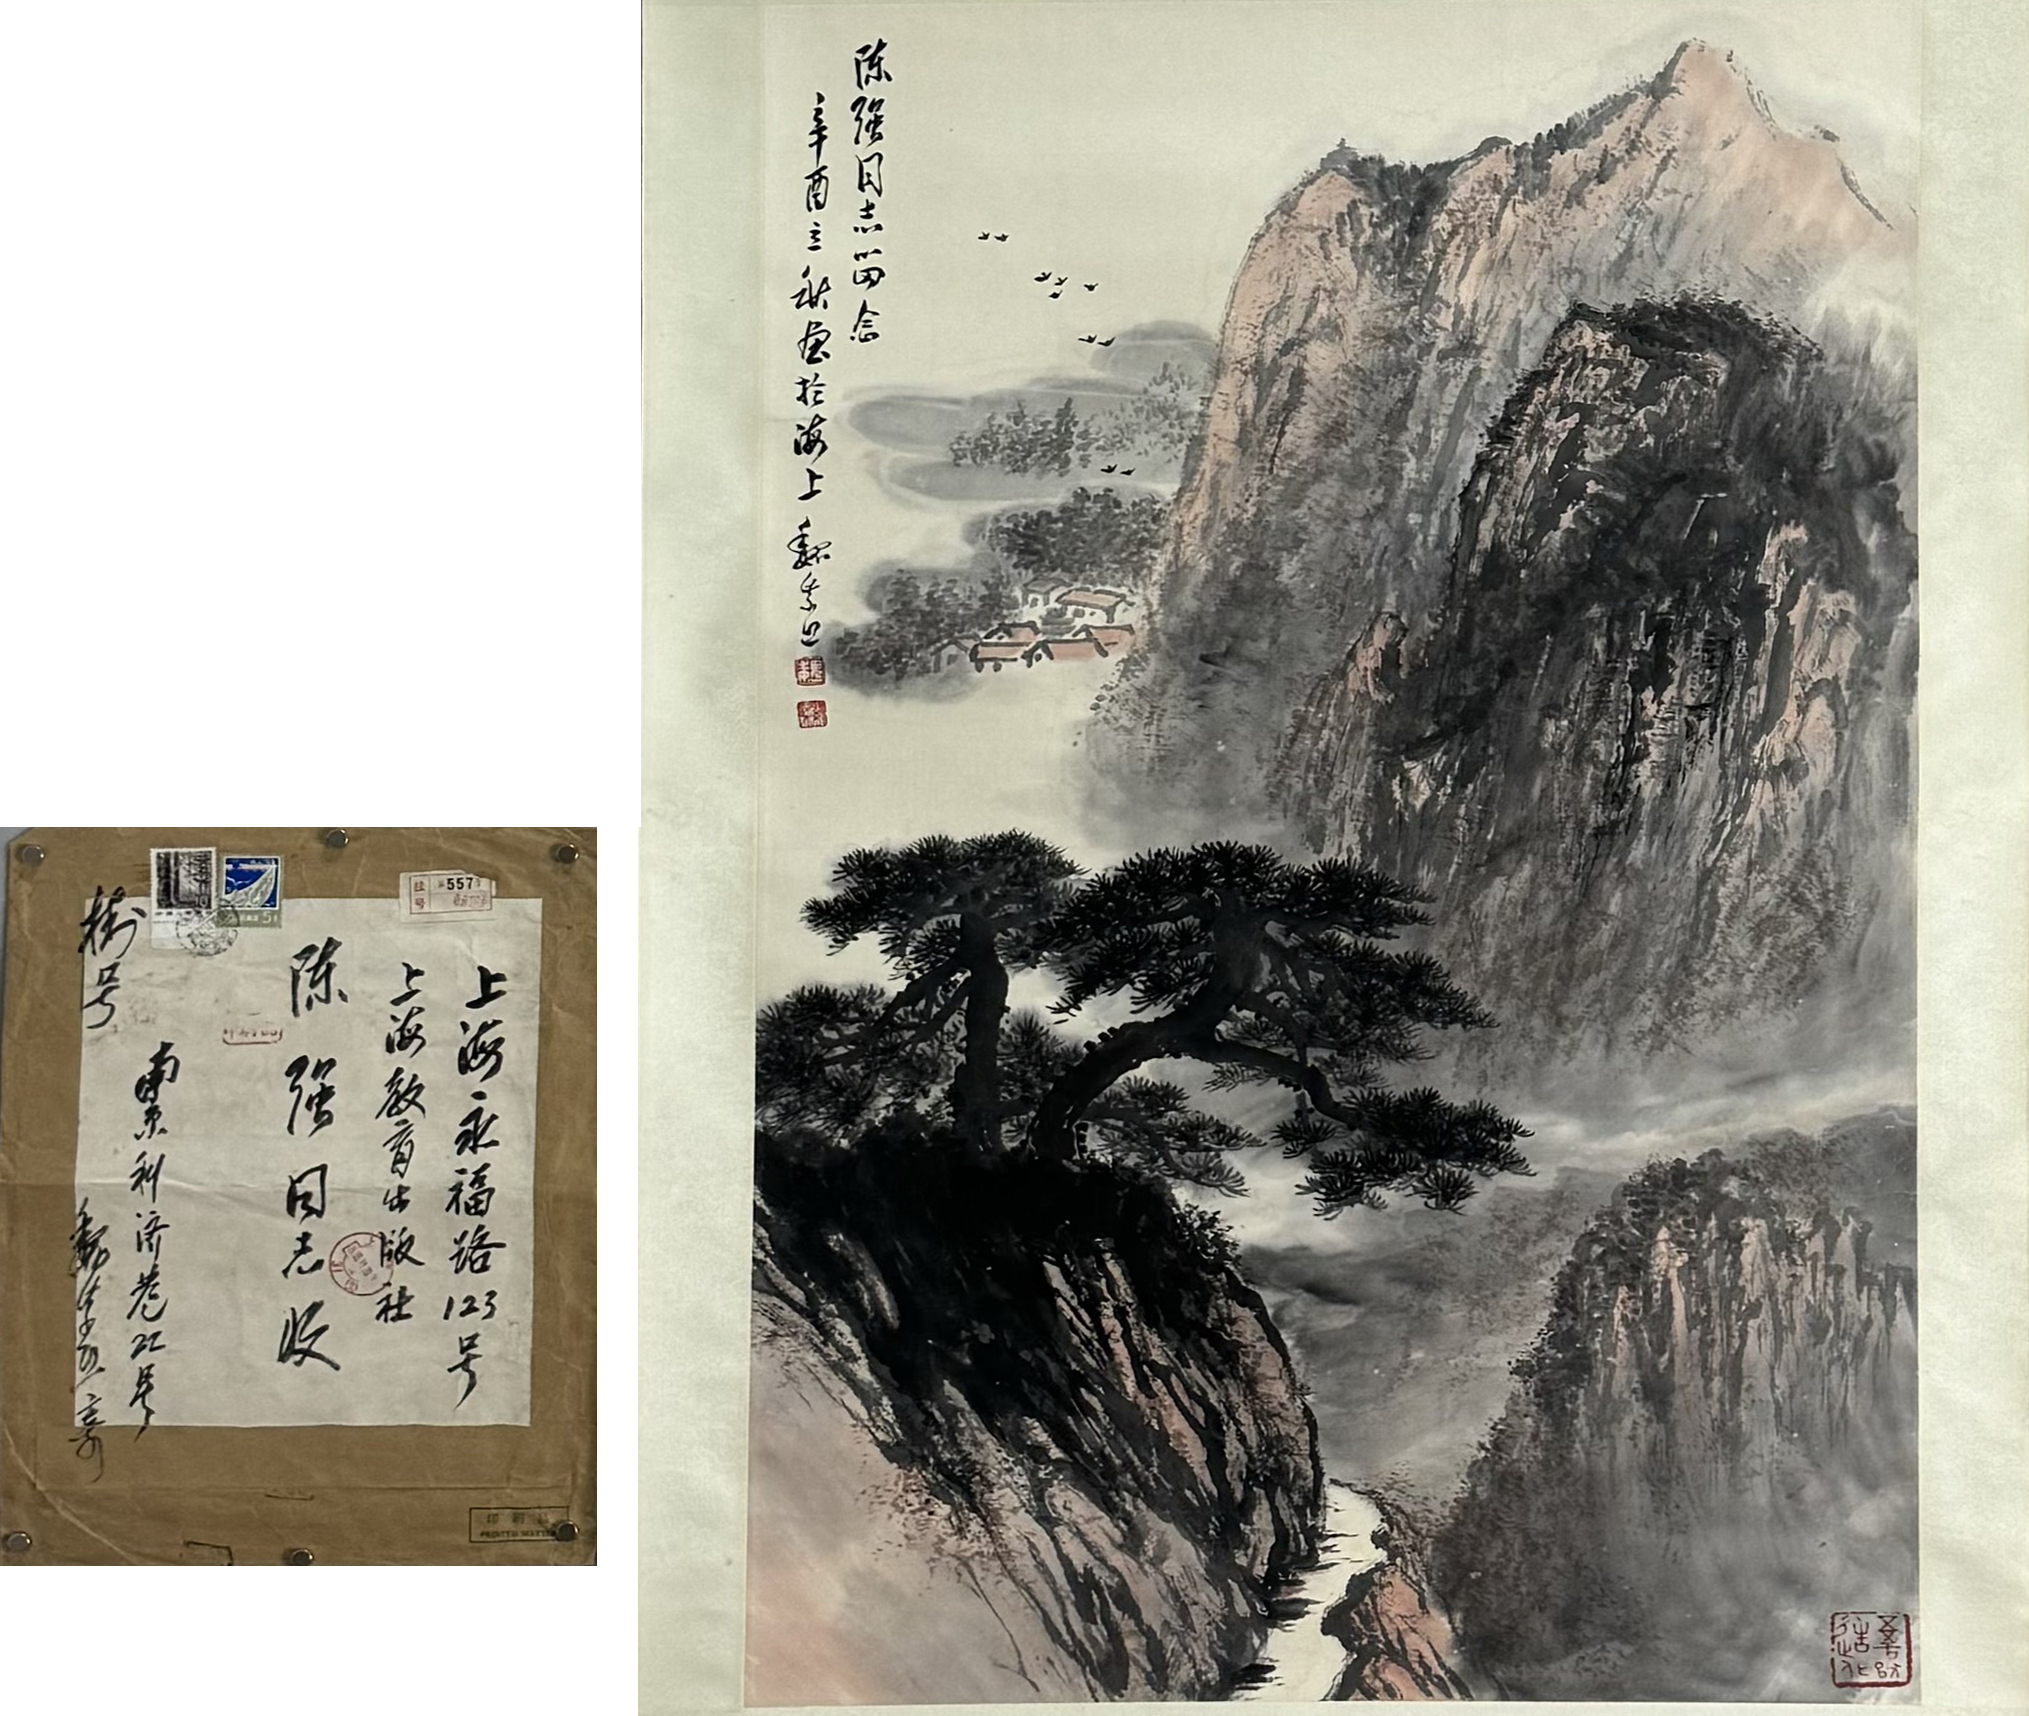 陈强同志留念
辛酉立秋画於海上魏紫熙
上海永福路123号
上海教育出版社
陈强同志收
南京利济巷22号
挂号
557
5分
印刷品
PRINTED MATTER